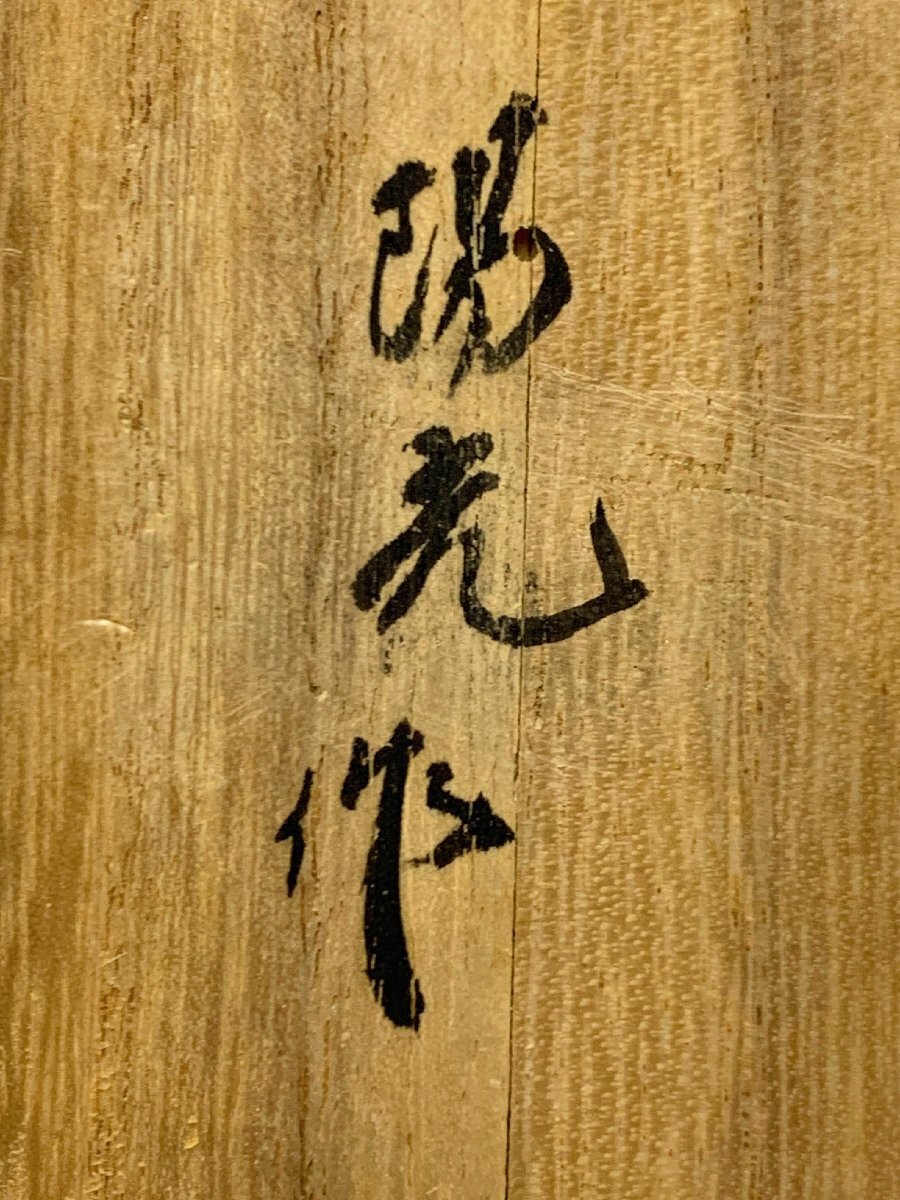 陽光作